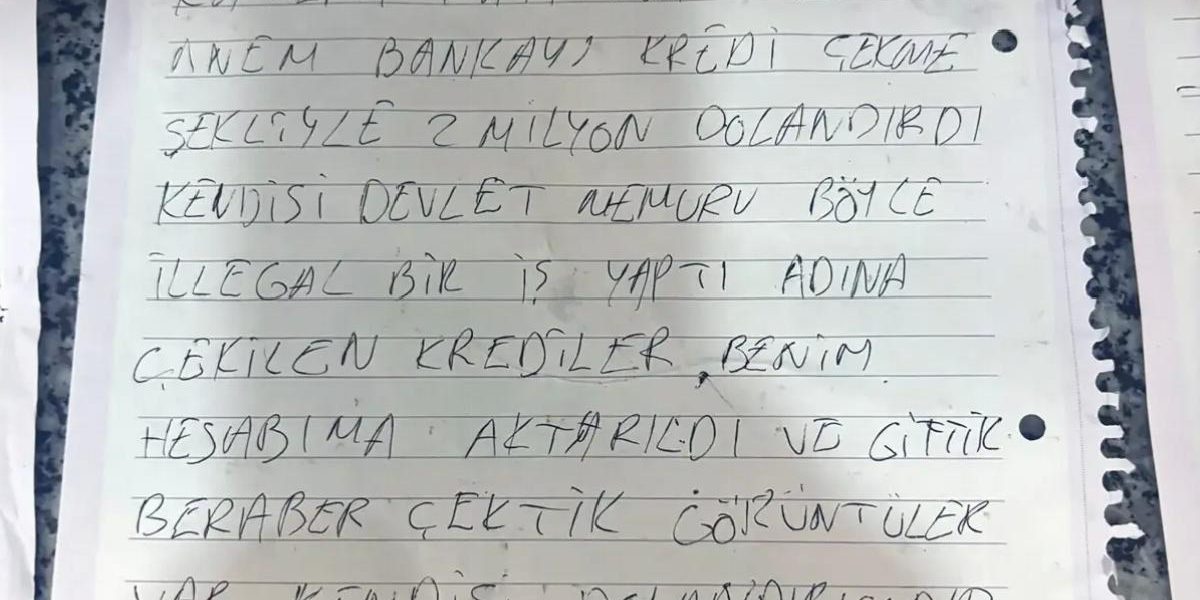 ANEM BANKAYI KREDİ ÇEKME
ŞEKLİYLE 2 MİLYON DOLANDIRDI
KENDİSİ DEVLET MEMURU BÖYLE
İLLEGAL BİR İŞ YAPTI ADINA
ÇEKİLEN KREDİLER, BENİM
HESABIMA AKTARILDI VE GİTTİK
BERABER ÇEKTİK GÖRÜNTÜLER
VAR KENDİSİ